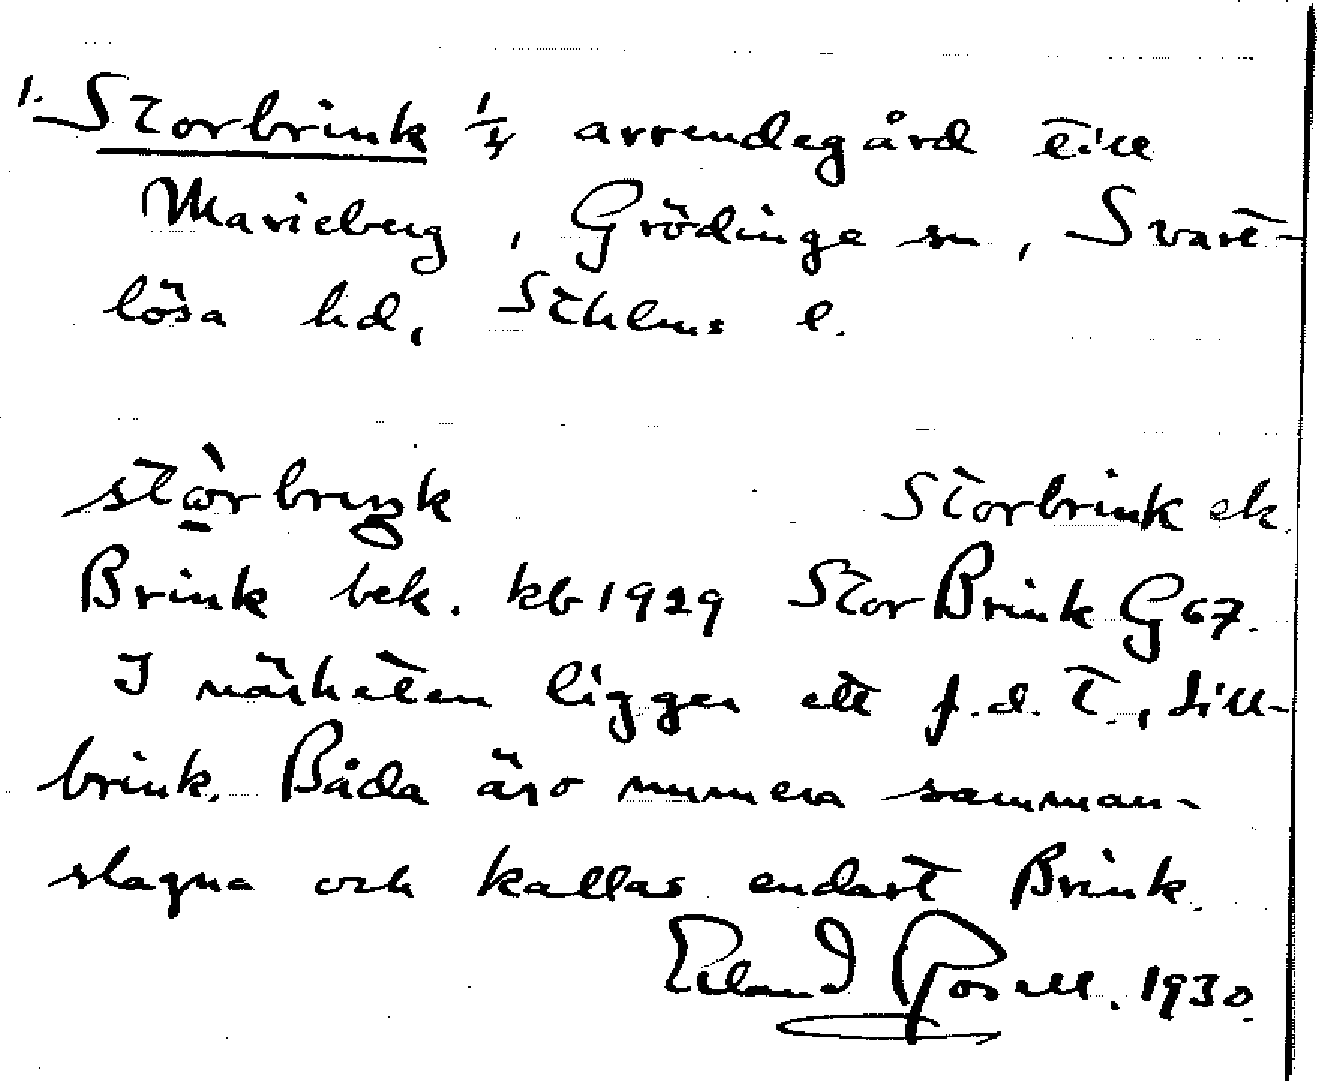 1. Storbrink 1/4 arrendegård till
Marieberg, Grödinge sn, Svart-
lösa hd, Sthlms l.
stò̱rbrıŋk Storbrink ek.
Brink bek. kb 1929 Stor Brink G 67.
I närheten ligger ett f.d. t., Lill-
brink. Båda äro numera samman-
slagna och kallas endast Brink.
Erland Rosell. 1930.